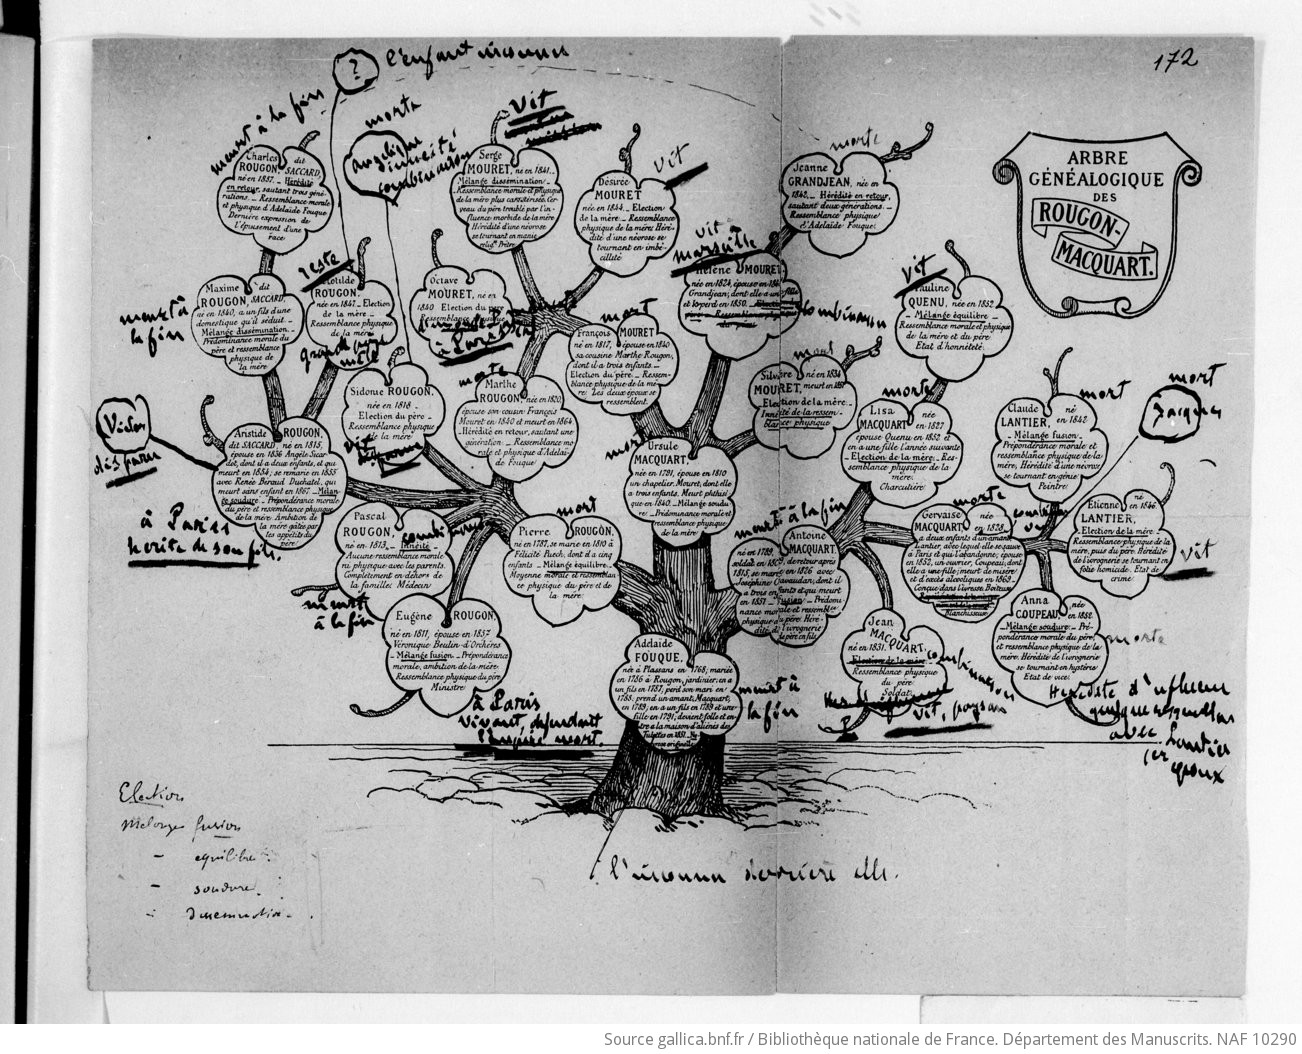 172
ARBRE
GÉNÉALOGIQUE
DES
ROUGON-
MACQUART.
?
l'enfant inconnu
meurt à la fin
Charles dit
ROUGON, SACCARD,
né en 1857. _ Hérédité
en retour, sautant trois géné
rations. _ Ressemblance morale
et physique d'Adelaïde Fouque.
Dernière expression de
l'épuisement d'une
race.
morte
Angélique
Innéité
combinaison
Vit
Serge
MOURET, né en 1841. _
Mélange dissémination. _
Ressemblance morale et physique
de la mère plus caractérisée. Cer-
veau du père troublé par l'in-
fluence morbide de la mère
Hérédité d'une névrose
se tournant en manie
religse. Prêtre.
vit
Désirée
MOURET
née en 1844. _ Election
de la mère. _ Ressemblance
physique de la mère. Héré-
dité d'une névrose se
tournant en imbé-
cillité
morte
Jeanne
GRANDJEAN, née en
1842. _ Hérédité en retour,
sautant deux générations. _
Ressemblance physique
d'Adelaïde Fouque.
meurt à
la fin
Maxime dit
ROUGON, SACCARD,
né en 1840, a un fils d'une
domestique qu'il séduit. _
Mélange dissémination. _
Prédominance morale du
père et ressemblance
physique de
la mère
reste
Clotilde
ROUGON,
née en 1847. _ Election
de la mère. _
Ressemblance physique
de la mère
Octave
MOURET, né en
1840. Election du père
Ressemblance physique
à Paris
vit
marseille
Hélène MOURET,
née en 1824, épouse en
Grandjean, dont elle a une fille
et le perd en 1850.
combinaison
mort
François
MOURET
né en 1817, épouse en 1840
sa cousine Marthe Rougon,
dont il a trois enfants. _
Election du père. _ Ressem-
blance physique de la mè-
re. Les deux époux se
ressemblent.
vit
Pauline
QUENU, née en 1852
_ Mélange équilibre _
Ressemblance morale et physique
de la mère et du père
Etat d'honnêteté.
Sidonie ROUGON,
née en 1818 _
Election du père _
Ressemblance physique
de la mère
morte
Marthe
ROUGON, née en 1820,
épouse son cousin François
Mouret en 1840 et meurt en 1864.
Hérédité en retour, sautant une
génération. _ Ressemblance mo-
rale et physique d'Adelaï-
de Fouque
mort
Silvère né en 1834
MOURET, meurt en 1851
Election de la mère. _
Innéité de la ressem-
blance physique
morte
Lisa née
MACQUART en 1827
épouse Quenu en 1852 et
en a une fille l'année suivante
_ Election de la mère. _ Res-
semblance physique de la
mère.
Charcutière
mort
Claude né
LANTIER, en 1842.
_ Mélange fusion. _
Prépondérance morale et
ressemblance physique de la
mère, Hérédité d'une névrose
se tournant en génie
Peintre.
mort
Jacques
Victor
disparu
Aristide ROUGON,
dit SACCARD, né en 1815,
épouse en 1836 Angèle Sicar-
dot, dont il a deux enfants, et qui
meurt en 1854; se remarie en 1855
avec Renée Béraud Duchatel, qui
meurt sans enfant en 1867. _ Mélan-
ge soudure _ Prépondérance morale
du père et ressemblance physique
de la mère. Ambition de
la mère gâtée par
les appétits du
père
à Paris
hérite de son fils.
mort
Ursule
MACQUART,
née en 1791, épouse en 1810
un chapelier, Mouret, dont elle
a trois enfants. Meurt phthisi
que en 1840. _ Mélange soudu
re _ Prédominance morale et
ressemblance physique
de la mère.
Pascal
ROUGON,
né en 1813. _ Innéité _
Aucune ressemblance morale
ni physique avec les parents.
Complètement en dehors de
la famille. Médecin
combinaison
meurt
à la fin
mort
Pierre ROUGON,
né en 1787, se marie en 1810 à
Félicité Puech, dont il a cinq
enfants _ Mélange équilibre. _
Moyenne morale et ressemblan
ce physique du père et de
la mère
meurt à la fin
Antoine
MACQUART,
né en 1789,
morte
Gervaise née
MACQUART en 1828
a deux enfants d'un amant
Lantier, avec lequel elle se sauve
à Paris et qui l'abandonne; épouse
en 1852, un ouvrier, Coupeau, dont
elle a une fille; meurt de misère
et d'excès alcooliques en 1869.
Conçue dans l'ivresse. Boiteuse
Blanchisseuse
vit
Etienne né
LANTIER, en 1846.
_ Election de la mère. _
Ressemblance physique de la
mère, puis du père. Hérédité
de l'ivrognerie se tournant en
folie homicide. Etat de
crime
Eugène ROUGON,
né en 1811, épouse en 1857
Véronique Beulin-d'Orchères
_ Mélange fusion. _ Prépondérance
morale, ambition de la mère.
Ressemblance physique du père
Ministre.
à Paris
vivant, défendant
l'empire mort.
Adelaïde
FOUQUE,
née à Plassans en 1768; mariée
en 1786 à Rougon, jardinier; en a
un fils en 1787; perd son mari en
1788; prend un amant, Macquart,
en 1789; en a un fils en 1789 et une
fille en 1791; devient folle et en-
tre à la maison d'aliénés des
Tulettes en 1851. _ Né-
vrose originelle
meurt à
la fin
Jean
MACQUART,
né en 1831. _
Election de la mère _
Ressemblance physique
du père
Soldat
combinaison
vit, paysan
morte
Anna née
COUPEAU, en 1852.
_ Mélange soudure. _ Pré-
pondérance morale du père,
et ressemblance physique de la
mère. Hérédité de l'ivrognerie
se tournant en hystérie
Etat de vice.
Hérédité d'influence
avec Lantier
1er époux
Election
Mélange fusion
— equilibre.
— soudure.
— dissemination.
l'inconnu derrière elle.
Source gallica.bnf.fr / Bibliothèque nationale de France. Département des Manuscrits. NAF 10290